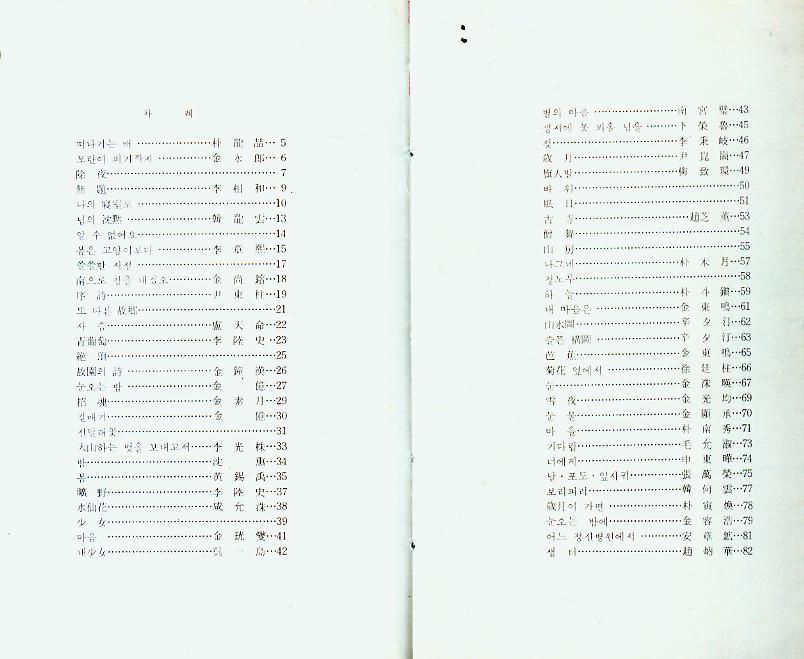 차 례
떠나가는 배 ⋯⋯ 朴 龍 喆⋯ 5
모란이 피기까지 ⋯⋯ 金 永 郎⋯ 6
除 夜⋯⋯ 7
無 題⋯⋯李 相 和⋯ 9
나의 寢室로 ⋯⋯10
님의 沈黙 ⋯⋯韓 龍 雲⋯13
알 수 없어요⋯⋯14
봄은 고양이로다⋯⋯李 章 熙⋯15
쓸쓸한 시절 ⋯⋯17
南으로 창을 내겠오⋯⋯金 尙 鎔⋯18
序 詩⋯⋯尹 東 柱⋯19
또 다른 故鄕⋯⋯21
사 슴⋯⋯盧 天 命⋯22
青葡萄⋯⋯李 陸 史⋯23
絶 頂⋯⋯25
故園의 詩 ⋯⋯金 鐘 漢⋯26
눈오는 밤 ⋯⋯金 億⋯27
招 魂⋯⋯金 素 月⋯29
갈매기⋯⋯金 億⋯30
진달래꽃⋯⋯31
入山하는 벗을 보내고서⋯⋯李 光 株⋯33
밤⋯⋯沈 熏⋯34
봄⋯⋯黃 錫 禹⋯35
曠 野⋯⋯李 陸 史⋯37
水仙花⋯⋯咸 允 洙⋯38
少 女⋯⋯39
마음 ⋯⋯金 珖 燮⋯41
海少女⋯⋯吳 一 島⋯42
별의 아픔 ⋯⋯南 宮 璧⋯43
생시에 못 뵈올 님을 ⋯⋯卞 榮 魯⋯45
젖⋯⋯李 秉 岐⋯46
歲 月⋯⋯尹 崑 崗⋯47
旗人발⋯⋯柳 致 環⋯49
바 위⋯⋯50
風 日⋯⋯51
古 寺⋯⋯趙芝 薰⋯53
僧 舞⋯⋯54
山 房⋯⋯55
나그네⋯⋯朴 木 月⋯57
청노루⋯⋯58
하 늘⋯⋯朴 斗 鎭⋯59
내 마음은 ⋯⋯金 東 鳴⋯61
山水圖⋯⋯辛 夕 汀⋯62
슬픈 構圖 ⋯⋯辛 夕 汀⋯63
芭 蕉⋯⋯金 東 鳴⋯65
菊花 옆에서 ⋯⋯徐 廷 柱⋯66
눈⋯⋯金 洙 暎⋯67
雪 夜⋯⋯金 光 均⋯69
눈 물⋯⋯金 顯 承⋯70
마 을⋯⋯朴 南 秀⋯71
기다림⋯⋯毛 允 淑⋯73
너에게⋯⋯申 東 曄⋯74
달·포도·잎사귀⋯⋯張 萬 榮⋯75
보리피리⋯⋯韓 何 雲⋯77
歲月이 가면 ⋯⋯朴 寅 煥⋯78
눈오는 밤에⋯⋯金 容 浩⋯79
어느 정신병원에서 ⋯⋯安 章 鉉⋯81
샘 터⋯⋯趙 炳 華⋯82